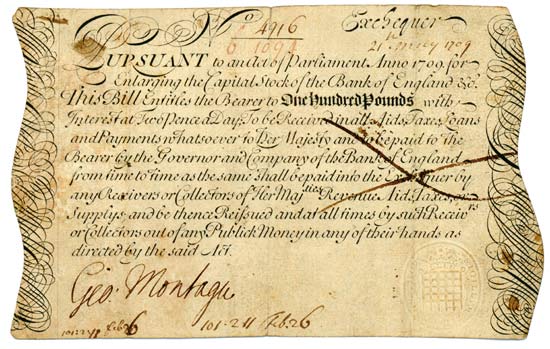 No 4916 Exchequer
6 1094 21 1709
PURSUANT to an Act of Parliament Anno 1709. for
Enlarging the Capital Stock of the Bank of England &c.
This Bill Entitles the Bearer to One Hundred Pounds with
Interest at Two Pence a Day, To be Received in all Aids, Taxes, Loans
and Payments whatsoever to Her Majesty and to be paid to the
Bearer by the Governor and Company of the Bank of England
from time to time as the same Shall be paid into the Exchequer by
any Receivers or Collectors of Her Majties Revenue, Aids, Taxes, or
Supplys and be thence Reissued and at all times by such Receivrs
or Collectors out of any Publick Money in any of their hands as
directed by the said Act.
Geo: Montagu
101:211 Feb: 26 101-211 Feb: 26